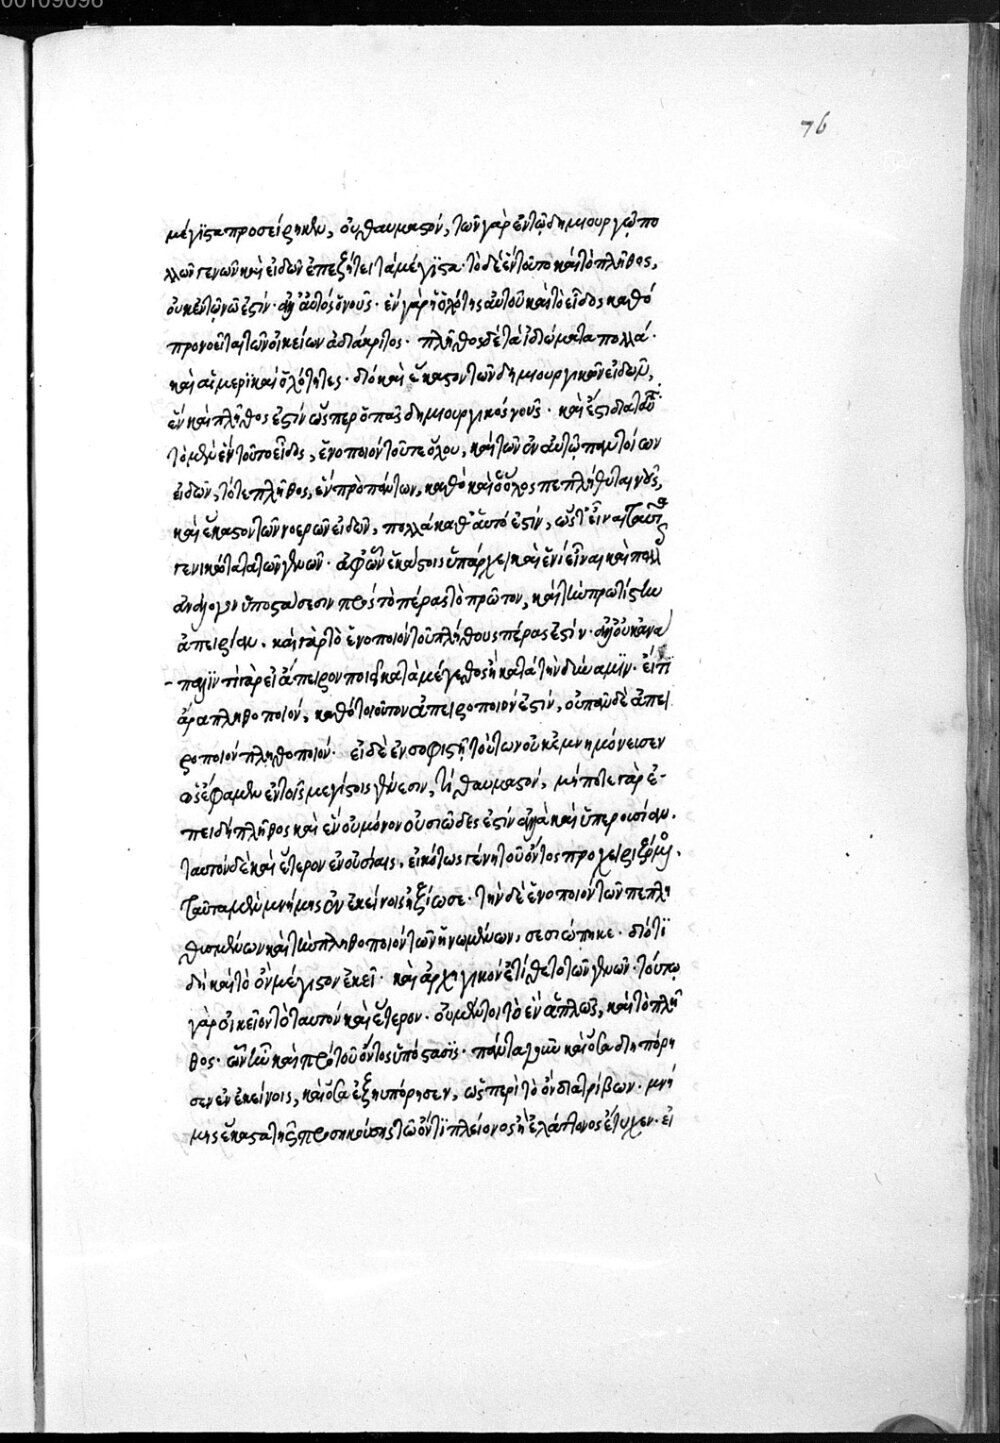 00109098
76
μέγιστα προσείρηκεν, οὐ θαυμαστόν, τῶν γὰρ ἐν τῷ δημιουργῷ πο
λλῶν γενῶν καὶ εἰδῶν ἐπεξήτει τὰ μέγιστα· τὸ δὲ ἓν τοῦτο καὶ τὸ πλῆθος,
οὐκ ἐν τῷ νῷ ἐστίν· ἀλλ' αὐτὸς ὁ νοῦς· ἓν γὰρ ἡ ὁλότης αὐτοῦ καὶ τὸ εἶδος καθὸ
προνοεῖται τῶν οἰκείων ἀδιάκριτος· πλῆθος δὲ τὰ ἰδιώματα πολλά·
καὶ αἱ μερικαὶ ὁλότητες· διὸ καὶ ἕκαστον τῶν δημιουργικῶν εἰδῶν,
ἓν καὶ πλῆθος ἐστίν ὥσπερ ὁ πᾶς δημιουργικὸς νοῦς· καὶ ἔστι διὰ ταῦτα
τὸ μὲν ἓν τοῦτο εἶδος, ἑνοποιὸν τοῦ τε ὅλου, καὶ τῶν ἐν αὐτῷ παντοίων
εἰδῶν, τό τε πλῆθος, ἓν πρὸ πάντων, καθὸ καὶ ὁ ὅλος πεπλήθυται νοῦς,
καὶ ἕκαστον τῶν νοερῶν εἰδῶν, πολλὰ καθ' αὑτό ἐστίν, ὥστ' εἶναι ταῦτα
γενικώτατα τῶν γενῶν· ἀφ' ὧν ἑκάστοις ὑπάρχει καὶ ἑνὶ εἶναι καὶ πολλ
ἀνάλογον ὑποστάσεσιν πρὸς τὸ πέρας τὸ πρῶτον, καὶ τὴν πρωτίστην
ἀπειρίαν. καὶ γὰρ τὸ ἑνοποιὸν τοῦ πλήθους πέρας ἐστίν· ἀλλ' οὐκ ἀνα
παλιν τί γὰρ εἰ ἄπειρον ποιεῖ κατὰ μέγεθος ἢ κατὰ τὴν δύναμιν· εἴ τι
ἄρα πληθοποιόν, καθὸ τοιοῦτον ἀπειροποιόν ἐστίν, οὐ πᾶν δὲ ἀπει
ροποιὸν πληθοποιόν· εἰ δὲ ἐν σοφιστῇ τούτων οὐκ ἐμνημόνευσεν
ὡς ἔφαμεν ἐν τοῖς μεγίστοις γένεσιν, τί θαυμαστόν, μήποτε γὰρ ἐ-
πειδὴ πλῆθος καὶ ἓν οὐ μόνον οὐσιῶδες ἐστίν ἀλλὰ καὶ ὑπερούσιον.
ταυτὸν δὲ καὶ ἕτερον ἐν οὐσίαις, εἰκότως γένη τοῦ ὄντος προχειριζόμενος,
ταῦτα μὲν μνήμης ἐν ἐκείνοις ἠξίωσε· τὴν δὲ ἑνοποιὸν τῶν πεπλη
θυσμένων καὶ τὴν πληθοποιὸν τῶν ἡνωμένων, σεσιώπηκε· διότι
δὴ καὶ τὸ ὂν μέγιστον ἐκεῖ· καὶ ἀρχηγικὸν ἐτίθετο τῶν γενῶν· τούτῳ
γὰρ οἰκεῖον τὸ ταυτὸν καὶ ἕτερον· οὐ μέντοι τὸ ἓν ἁπλῶς, καὶ τὸ πλῆ
θος· ὧν ἦν καὶ πρὸ τοῦ ὄντος ὑπόστασις· πάντα γοῦν καὶ ὅσα διηπόρη
σεν ἐν ἐκείνοις, καὶ ὅσα ἐξηυπόρησεν, ὡς περὶ τὸ ὂν διατρίβων· μνή
μης ἕκαστα τῆς προσηκούσης τῷ ὄντι πλείονος ἢ ἐλάττονος ἔτυχεν· εἰ